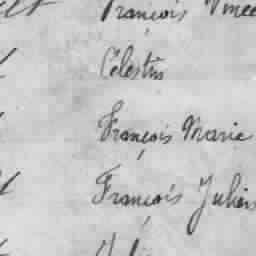 François
Célestin
François Marie
François Julien